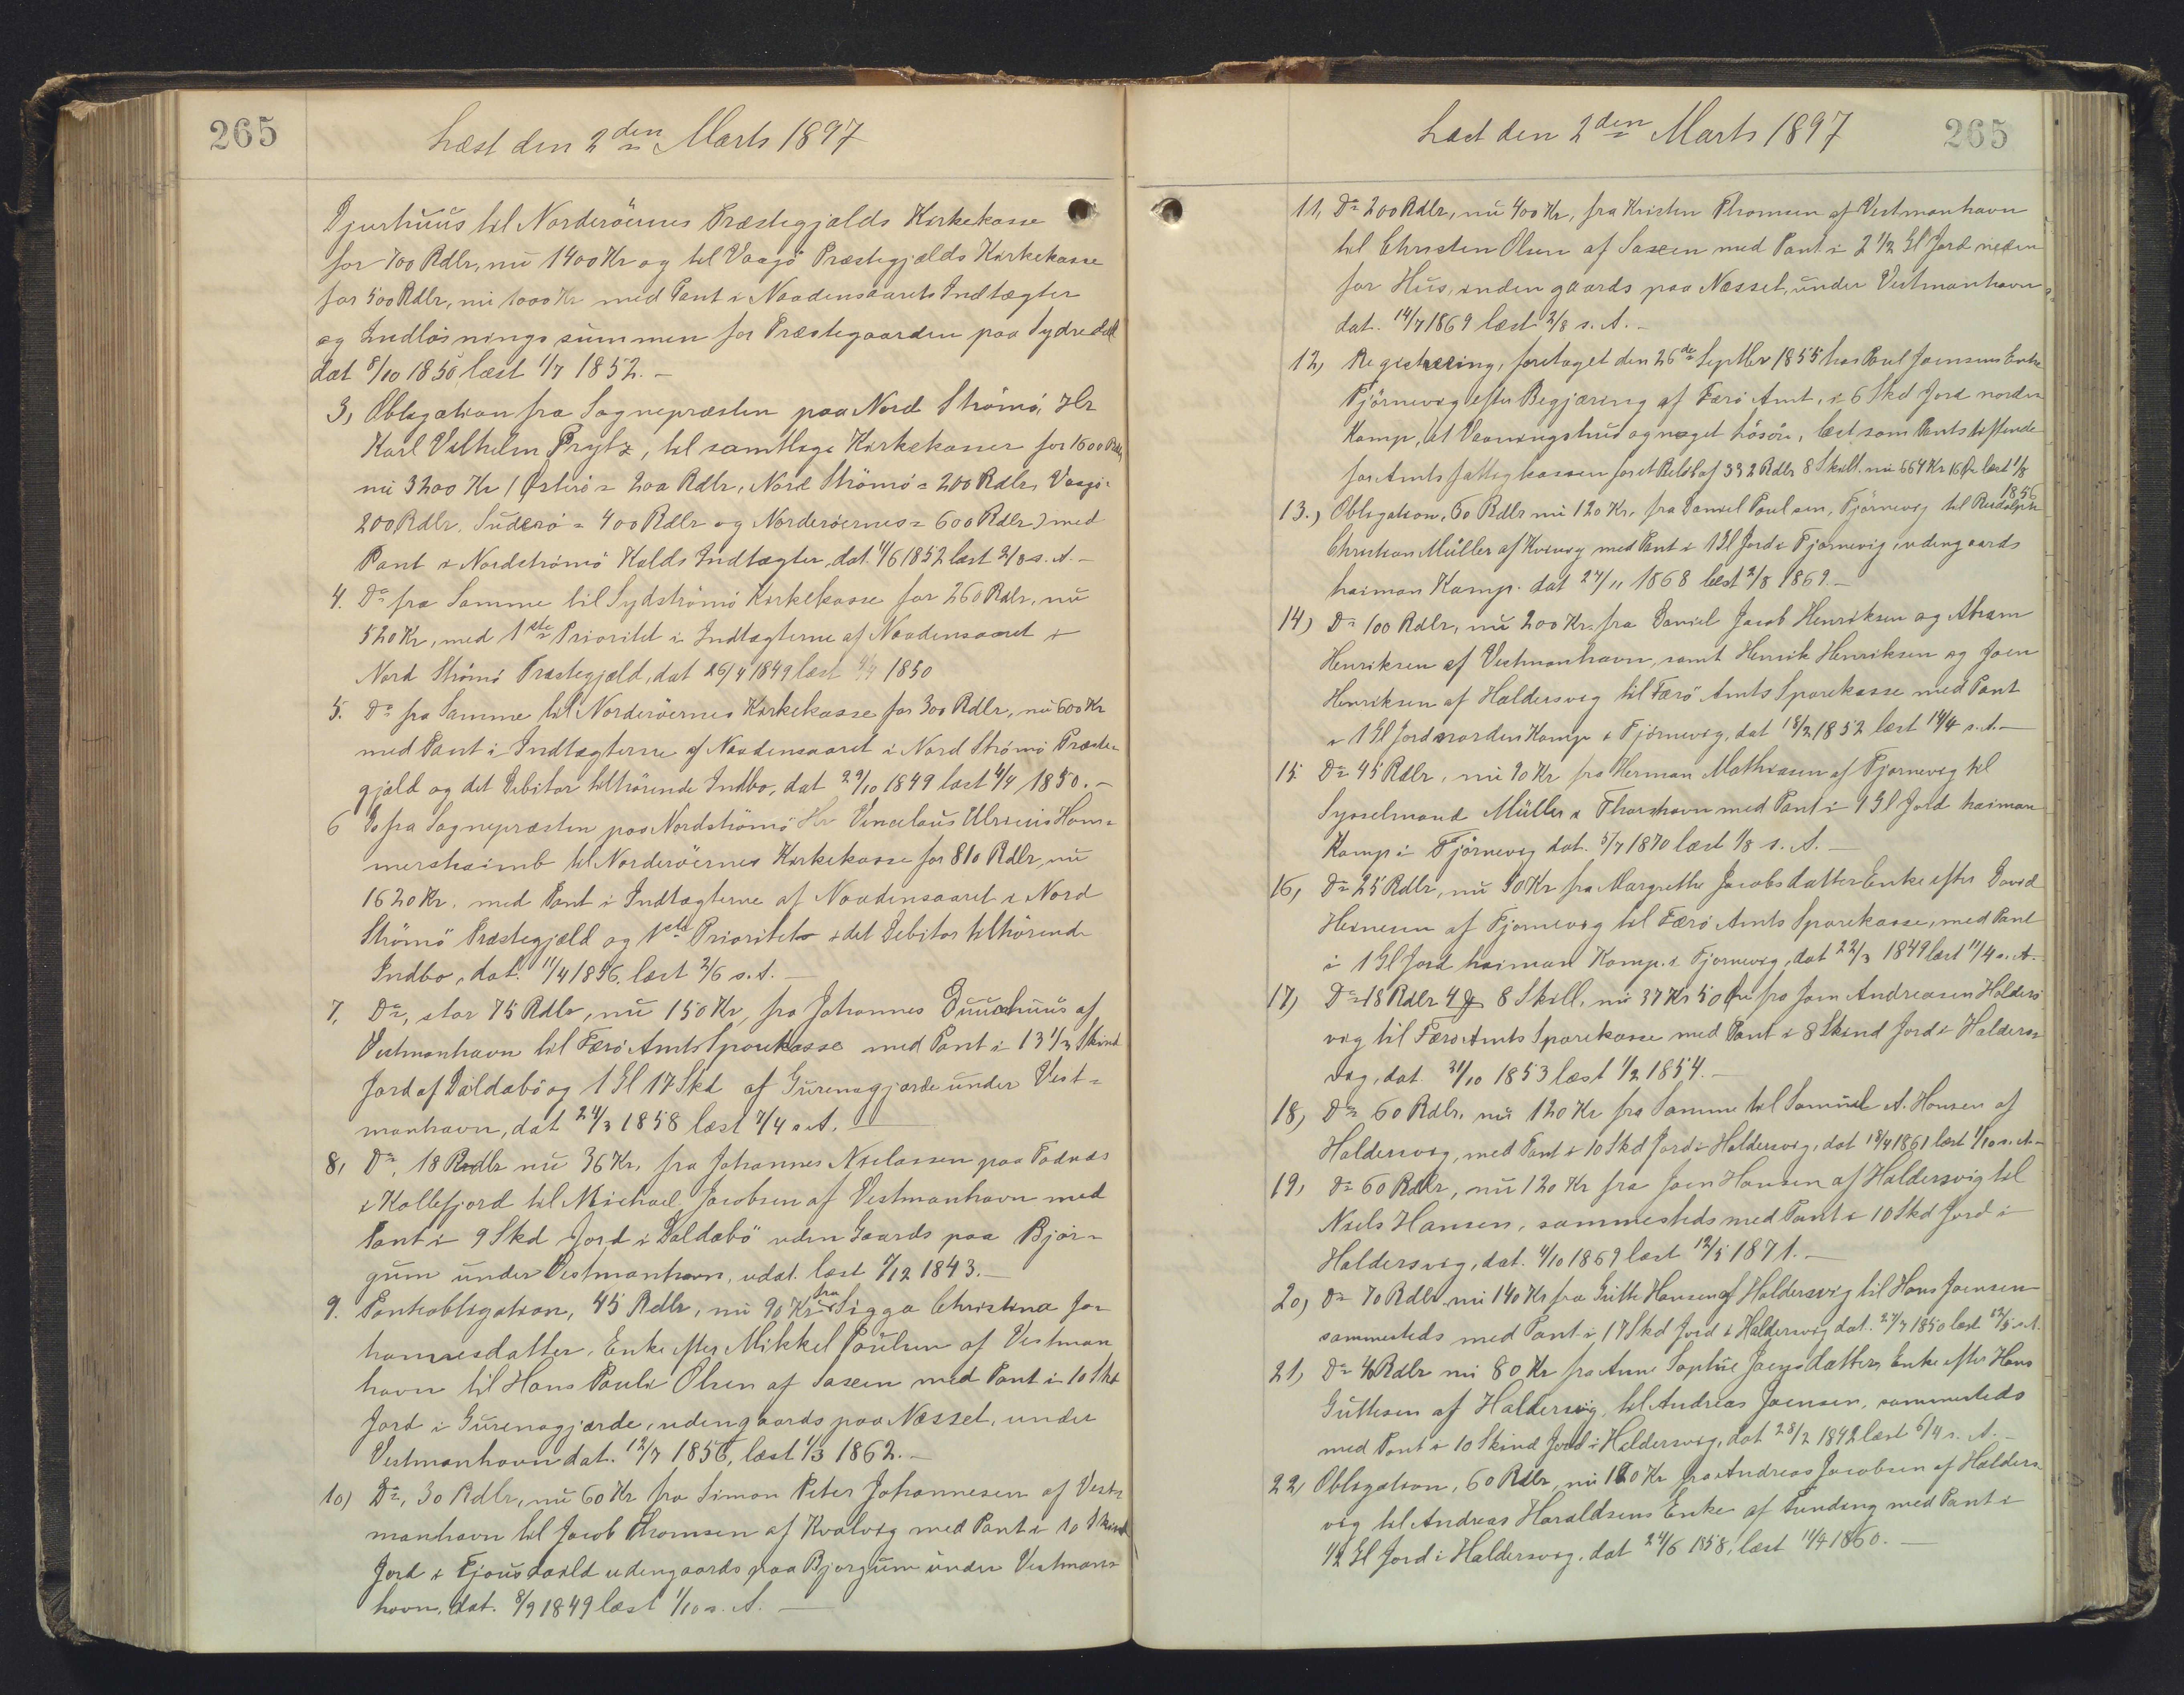 265
Læst den 2den Marts 1897
Djurhuus til Norderöernes Præstegjælds Kirkekasse
for 700 Rdlr, nu 1400 Kr og til Vaagö Præstegjælds Kirkekasse
for 500 Rdlr, nu 1000 Kr med Pant i Naadensaarets Indtægter
og Indlösningssummen for Præstegaarden paa Sydredal
dat 8/10 1850 læst 1/7 1852.-
3, Obligation fra Sognepræsten paa Nord Strömö, Hr
Karl Vilhelm Prytz, til samtlige Kirkekasser for 1600 Rdlr
nu 3200 Kr (Österö = 200 Rdlr, Nord Strömö = 200 Rdlr, Vaagö =
200 Rdlr. Suderö = 400 Rdlr og Norderöernes = 600 Rdlr) med
Pant i Nordströmö Kalds Indtægter, dat. 11/6 1852 læst 2/8 s. A.-
4. Do fra Samme til Sydströmö Kirkekasse for 260 Rdlr, nu
520 Kr, med 1ste Prioritet i Indtægterne af Naadensaaret i
Nord Strömö Præstegjæld, dat 26/4 1849 læst 4/4 1850
5. Do fra Samme til Norderöernes Kirkekasse for 300 Rdlr, nu 600 Kr
med Pant i Indtægterne af Naadensaaret i Nord Strömö Præste=
gjæld og det Debitor tilhörende Indbo, dat 29/10 1849 læst 4/4 1850.-
6 Do fra Sognepræsten paa Nordströmö Hr Venceslaus Ulricus Ham=
mershaimb til Norderöernes Kirkekasse for 810 Rdlr, nu
1620 Kr. med Pant i Indtægterne af Naadensaaret i Nord
Strömö Præstegjæld og 1ste Prioritet i det Debitor tilhörende
Indbo, dat. 11/4 1856, læst 2/6 s. A.-
7, Do, stor 75 Rdlr, nu 150 Kr, fra Johannes Duuchuus af
Vestmanhavn til Færö Amts Sparekasse med Pant i 13 1/3 Skind
Jord af Daldabö og 1 Gl 17 Skd af Gurenagjærde under Vest=
manhavn, dat 24/3 1858 læst 7/4 s. A.
8, Do, 18 Rdlr nu 36 Kr, fra Johannes Niclassen paa Todnæs
i Kollefjord til Michael Jacobsen af Vestmanhavn med
Pant i 9 Skd Jord i Daldabö uden Gaards paa Bjør=
gum under Vestmanhavn, udat. læst 7/12 1843.-
9. Panteobligation, 45 Rdlr, nu 90 Kr fra Sigga Christina Jo=
hannesdatter, Enke efter Mikkel Poulsen af Vestman
havn til Hans Pauli Olsen af Saxen med Pant i 10 Skd
Jord i Gurenagjærde, udengaards paa Næsset, under
Vestmanhavn dat. 12/7 1856, læst 1/3 1862.-
10) Do, 30 Rdlr, nu 60 Kr fra Simon Peter Johannesen af Vest=
manhavn til Jacob Thomsen af Kvalvig med Pant i 10 Skind
Jord i udengaards paa Bjorgum under Vestman=
havn, dat. 8/9 1849 læst 1/10 s. A.
Læst den 2den Marts 1897
265
11, Do 200 Rdlr, nu 400 Kr, fra Kristen Thomsen af Vestmanhavn
til Christen Olsen af Saxen med Pant i 2 1/2 Gl Jord neden
for Hus, inden gaards paa Næsset, under Vestmanhavn
dat. 14/7 1869 læst 2/8 s. A.-
12, Registrering, foretaget den 26de Septbr 1855 hos Poul Joensens Enke
Tjörnevig efter Begjæring af Færö Amt, i 6 Skd Jord norden
Kamp, et Vaaningshus og noget Lösöre, læst som Pantstiftende
for Amts fattigkassen for et Belöb af 332 Rdlr 8 Skill. nu 664 Kr 16 Ør læst 1/8
1856
13.) Obligation, 60 Rdlr nu 120 Kr, fra Daniel Poulsen, Tjörnevig til Rudolph
Christian Müller af Kvivig med Pant i 1 Gl Jord i Tjörnevig, indengaards
haiman Kamp. dat 27/11 1868 læst 2/8 1869.-
14) Do 100 Rdlr, nu 200 Kr. fra Daniel Jacob Henriksen og Abram
Henriksen af Vestmanhavn, samt Henrik Henriksen og Joen
Henriksen af Haldersvig til Færö Amts Sparekasse med Pant
i 1 Gl Jord norden Kamp i Tjörnevig, dat 18/2 1852 læst 14/4 s. A.-
15 Do 45 Rdlr, nu 90 Kr fra Herman Mathiasen af Tjørnevig til
Sysselmand Müller i Thorshavn med Pant i 1 Gl Jord haiman
Kamp i Tjörnevig dat. 5/7 1870 læst 1/8 s. A.-
16, Do 25 Rdlr, nu 50 Kr fra Margrethe Jacobsdatter Enke efter David
Heinesen af Tjørnevig til Færö Amts Sparekasse, med Pant
i 1 Gl Jord haiman Kamp. i Tjørnevig, dat 22/3 1849 læst 11/4 s. A.-
17) Do 18 Rdlr 4 8 Skill, nu 37 Kr 50 Ør fra Joen Andreasen Halders
vig til Færö Amts Sparekasse med Pant i 8 Skind Jord i Halders=
vig, dat. 31/10 1853 læst 1/2 1854.-
18, Do 60 Rdlr, nu 120 Kr fra Samme til Samuel A. Hansen af
Haldersvig, med Pant i 10 Skd Jord i Haldersvig, dat 18/4 1861 læst 1/10 s. A.-
19, Do 60 Rdlr, nu 120 Kr fra Joen Hansen af Haldersvig til
Niels Hansen, sammesteds med Pant i 10 Skd Jord i
Haldersvig, dat. 4/10 1869 læst 12/5 1871.-
20, Do 70 Rdlr. nu 140 Kr fra Gutte Hansen af Haldersvig til Hans Joensen
sammesteds med Pant i 17 Skd Jord i Haldersvig dat. 27/7 1850 læst s. A.
21, Do 40 Rdlr nu 80 Kr fra Anne Sophie Joensdatter, Enke efter Hans
Guttesen af Haldersvig, til Andreas Joensen, sammesteds
med Pant i 10 Skind Jord i Haldersvig, dat 28/2 1842 læst 6/4 s. A.-
22, Obligation, 60 Rdlr, nu 120 Kr fra Andreas Jacobsen af Halders=
vig til Andreas Haraldsens Enke af Funding med Pant i
1/2 Gl Jord i Haldersvig. dat 24/6 1858, læst 11/4 1860.-